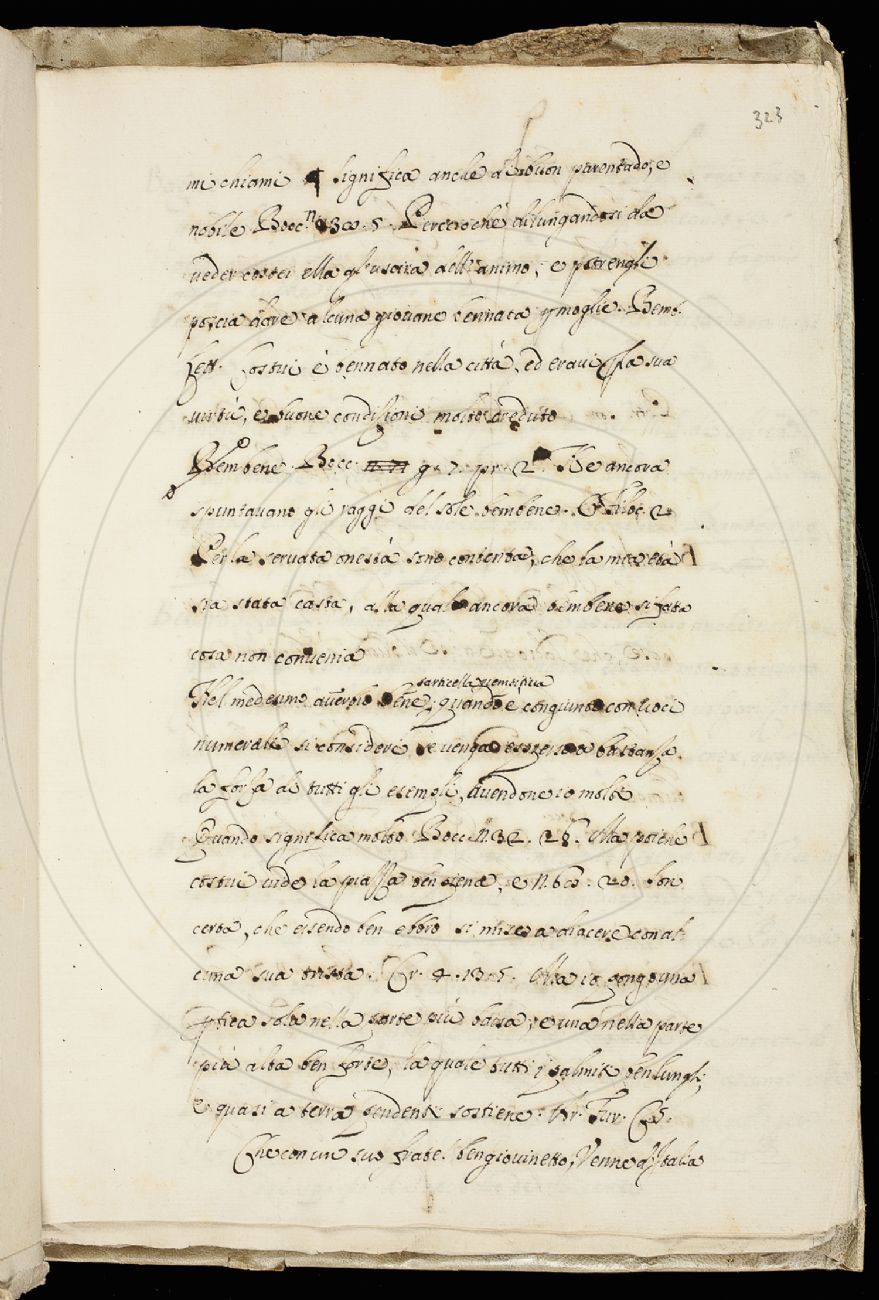 323
mi chiami significa anche di buon parentado, e
nobile. Bocc. n. 5. Perciochè dilungandosi da
veder costei ella gli uscira dell'animo, e potrengli
poscia dare alcuna giovane bennata p moglie. Bemb.
lett. Costui è bennato nella città, ed eravi p la sua
virtù, e buone condizioni molto creduto
Bembene. Bocc. g. 7. pr. 2. Ne ancora
spuntavano gli raggi del sole bembene. Filoc. 2
Per la servata onestà sono contenta, che la mia età
sia stata casta, alla quale ancora bembene si fata
cosa non convenia
particella riempitiva
Nel medesimo averbio bene, quando è congiunto con voci
numerali si consideri se venga espresso a bastanza
la forza di tutti gli esempli, avendone io molti
Quando significa molto. Bocc. n. 32. 28. Ma poichè
costui vide la piazza ben piena, e N. 60. 20. Con
certa, che essendo ben ebbro si mise a giacere con al
cuna sua trista. Cr. 4. 13. 5. Ma io pongo una
ptica sola nella parte più bassa, e una nella parte
più alta ben forte, la quale tutti i palmiti ben lungi,
e quasi a terra pendenti sostiene. Ar. Fur.
Che con un suo fratel ben giovinetto, Venne d'Italia